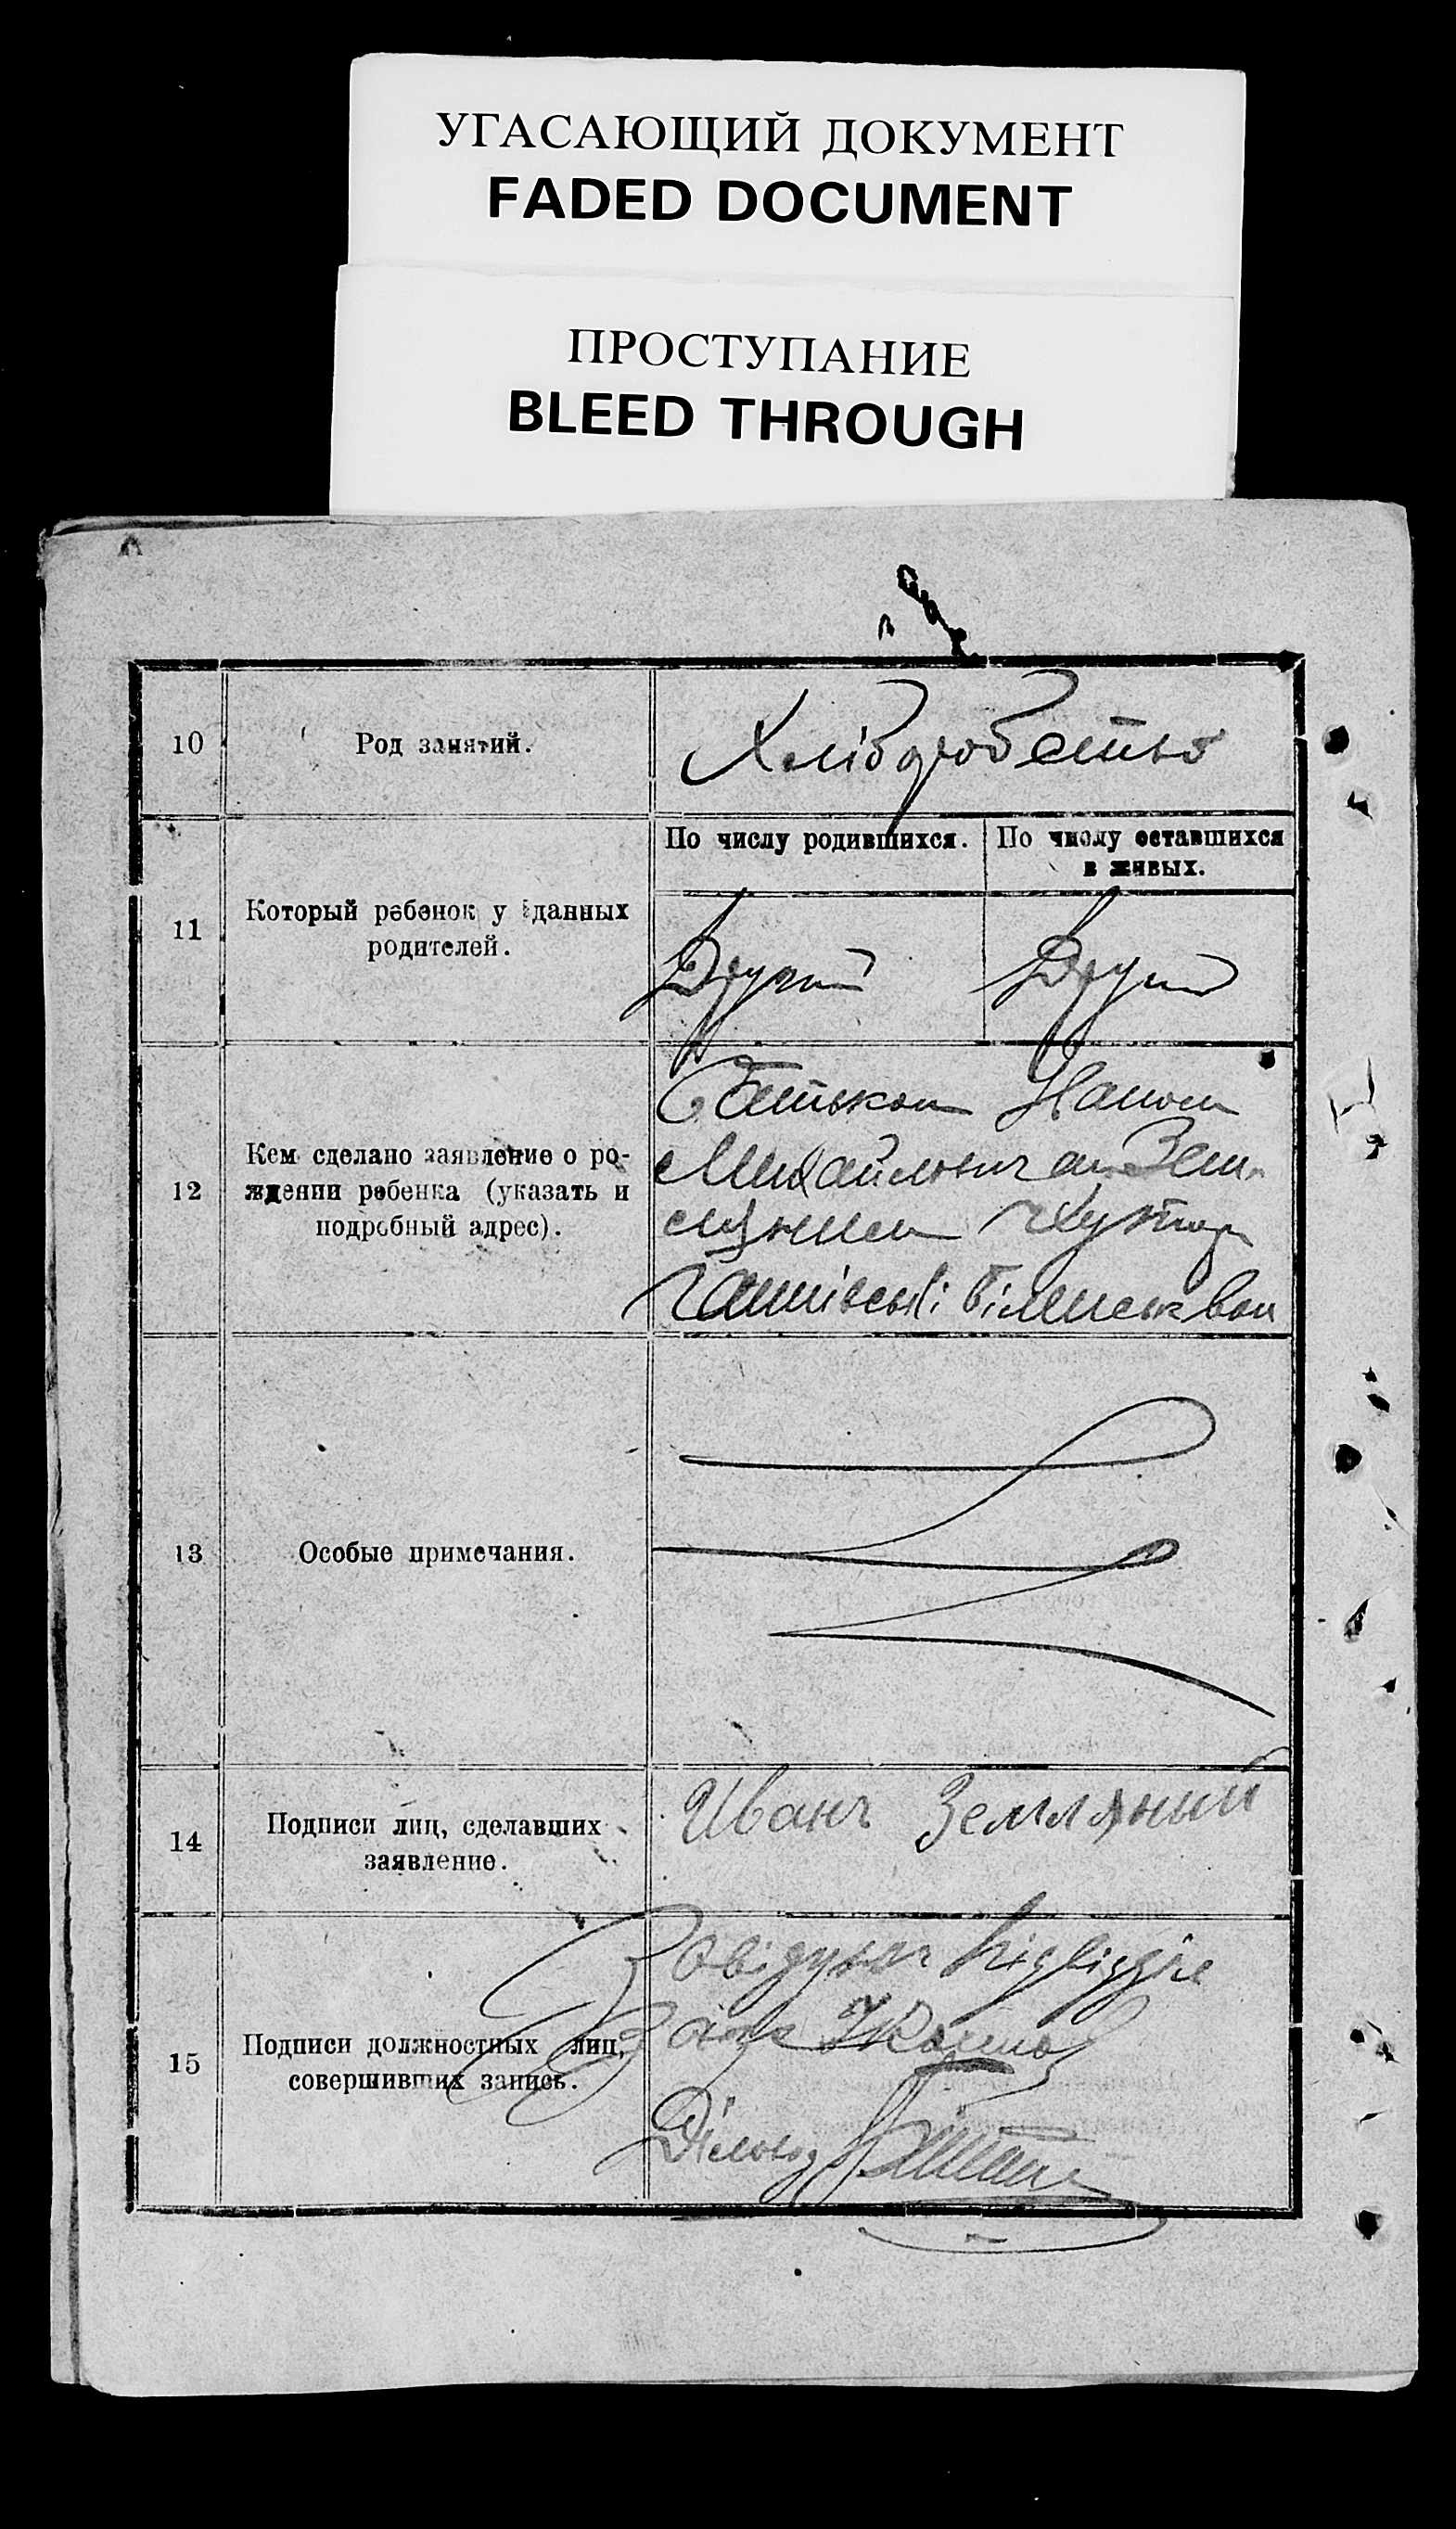 УГАСАЮЩИЙ ДОКУМЕНТ
FADED DOCUMENT
ПРОСТУПАНИЕ
BLEED THROUGH
10
Род занятий.
Хліборобство
11
Который ребенок у данных
родителей.
По числу родившихся.
По числу оставшихся
в живых.
Другий
Другий
12
Кем сделано заявление о ро-
ждении ребенка (указать и
подробный адрес).
Батьком Иваном
Михайловичем Зем-
Хутор
13
Особые примечания.
14
Подписи лиц, сделавших
заявление.
Иванъ Земляный
15
Подписи должностных лиц,
совершивших запись.
Завідувач
Діловод